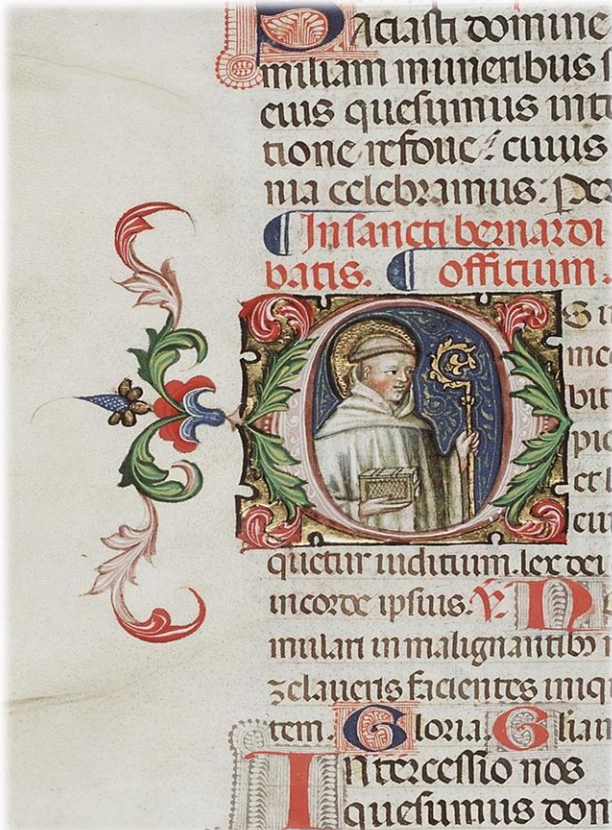 Saciasti domine
miliam muneribus s
eius quesumus int
tione refove: cuius
nia celebramus. Per
In sancti bernardi
batis. offitium.
O S iu
me
bit
pie
et l
eiu
quetur iuditium. lex dei
in corde ipsius. V. N
mulari in malignantibꝫ
zelaveris facientes iniq
tem. Gloria. G lian
Intercessio nos
quesumus dom